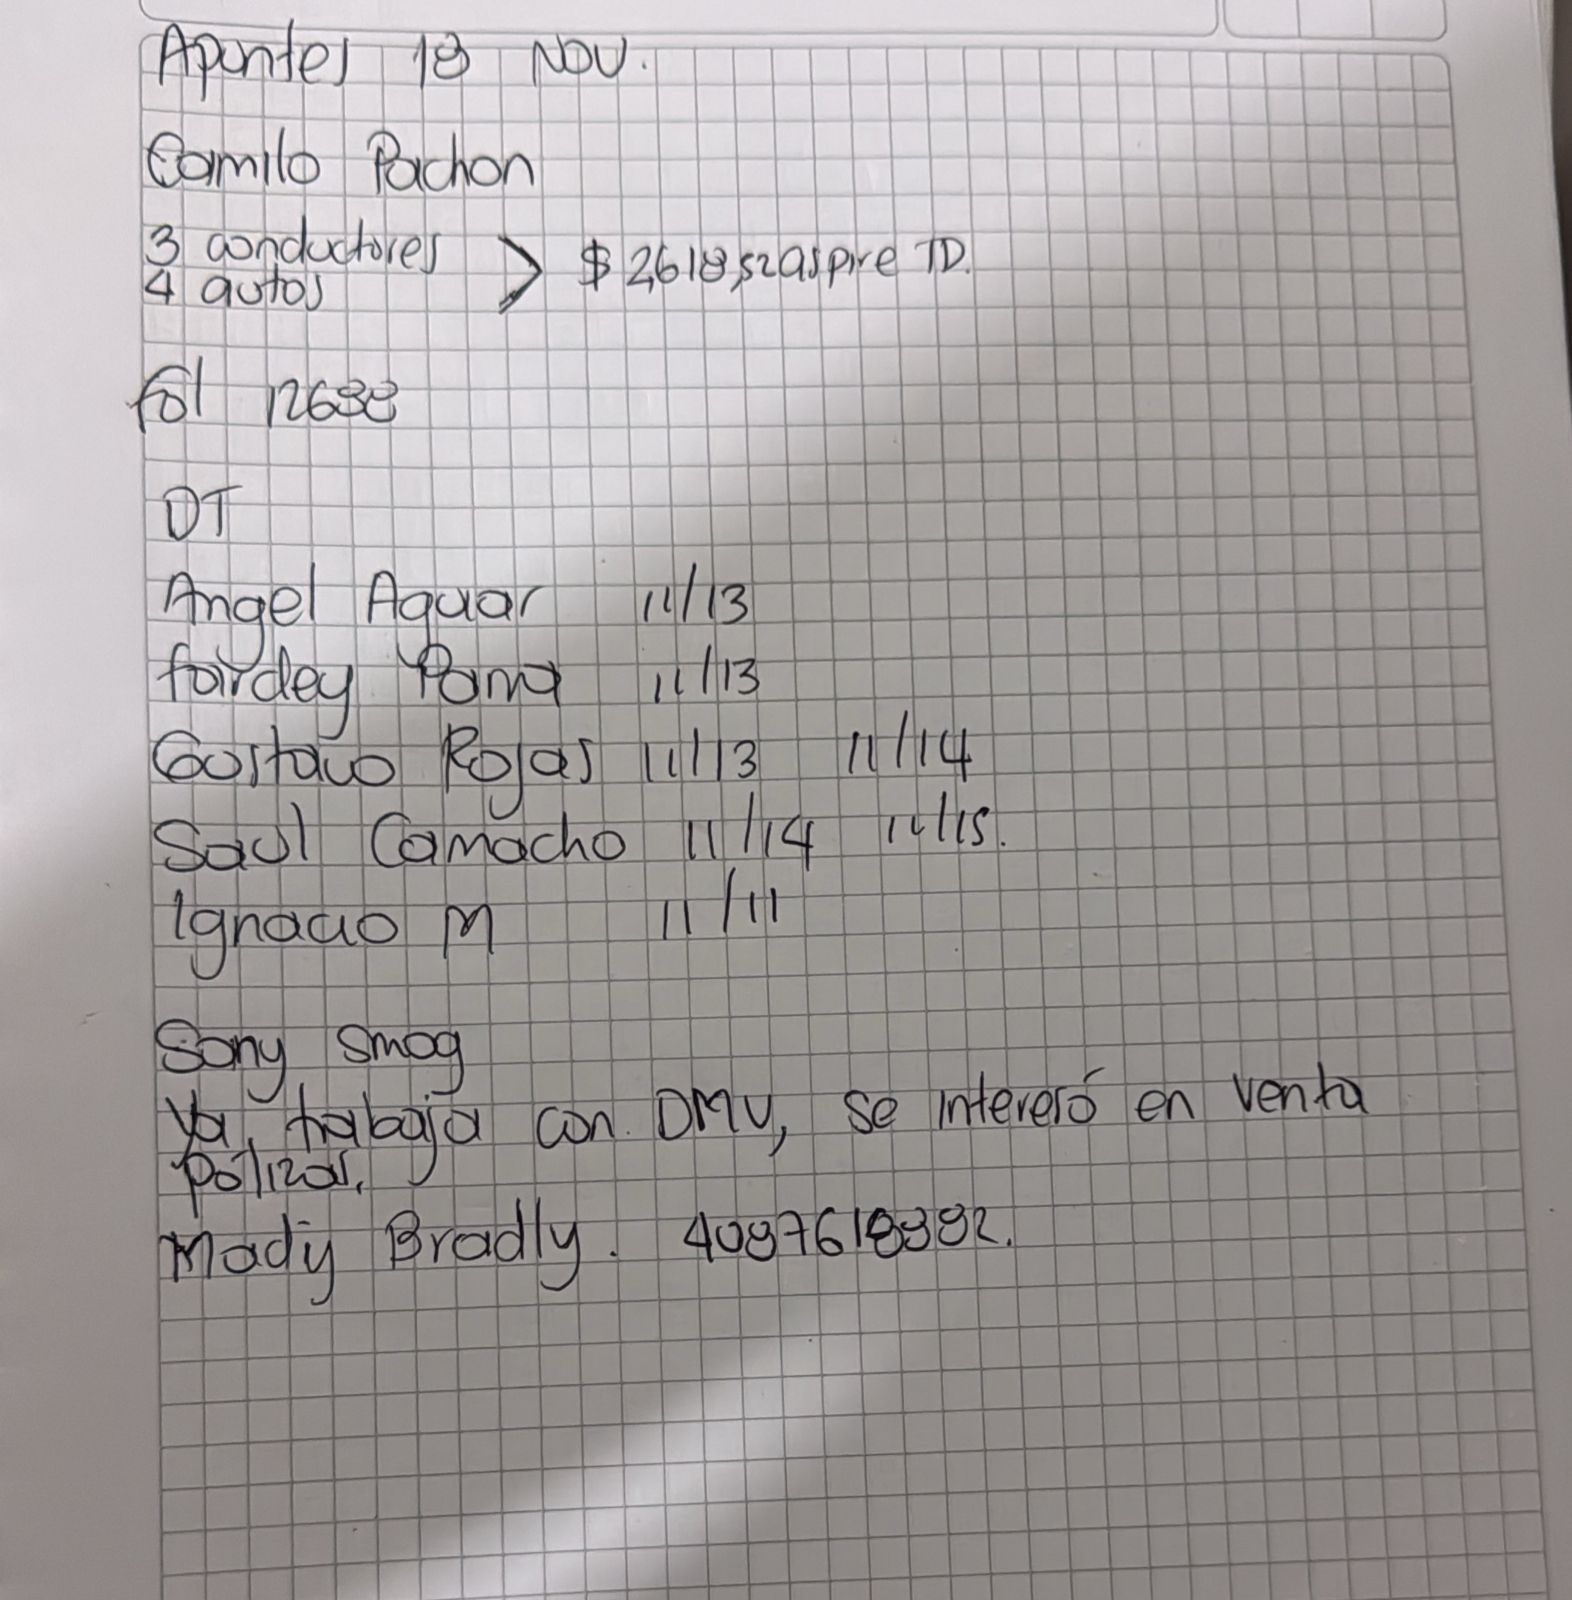 Apuntes 18 Nov.
Camilo Pachon
3 conductores
4 autos > $2,618,52 aspire TD.
fol 12688
DT
Angel Aguar 11/13
fairdey Poma 11/13
Gustavo Rojas 11/13 11/14
Saul Camacho 11/14 11/15.
Ignacio M 11/11
Sony Smog
Ya, trabaja con DMV, se interesó en venta
polizas.
Mady Bradly. 4087618382.